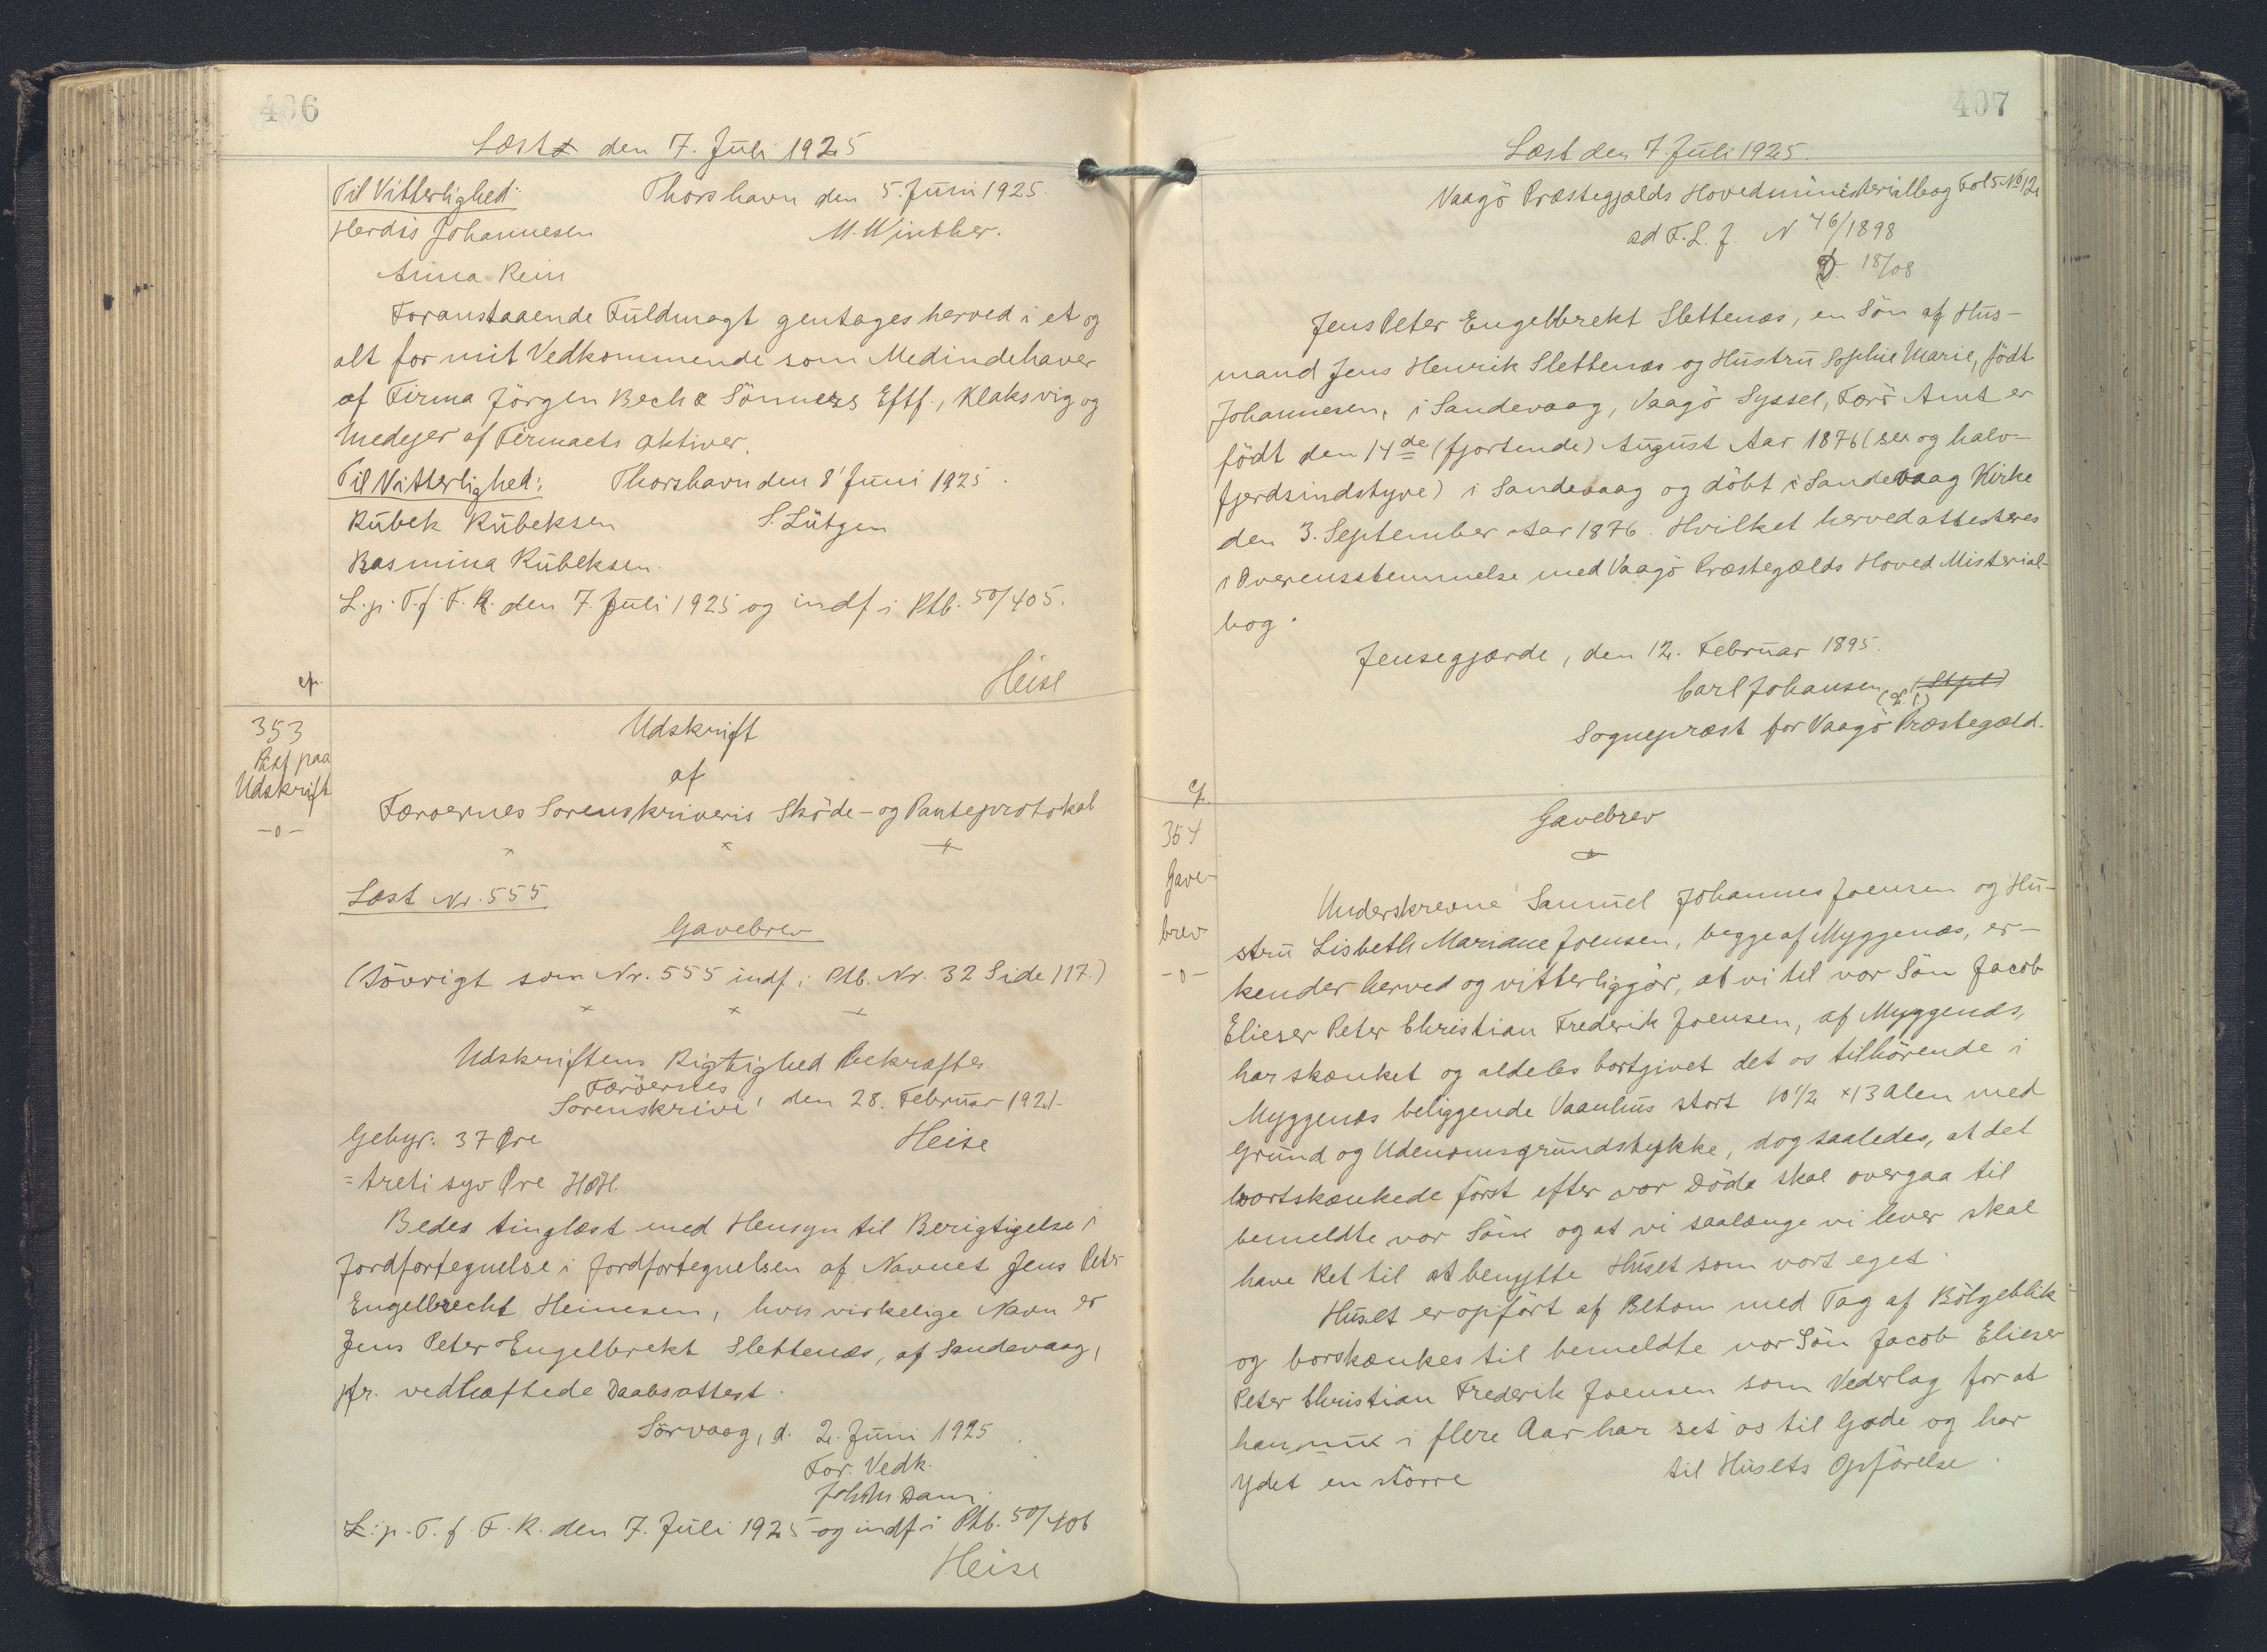 406
Læst den 7. Juli 1925
Til Vitterlighed: Thorshavn den 5. Juni 1925.
Herdis Johannesen M. Winther.
Anna Rein
Foranstaaende Fuldmagt gentages herved i et og
alt for mit Vedkommende som Medindehaver
af Firma Jörgen Bech & Sönners Eftf., Klaksvig og
Medejer af Firmaets Aktiver.
Til Vitterlighed: Thorshavn den 8' Juni 1925.
Rubek Rubeksen S. Lützen
Rasmina Rubeksen.
L. p. T. f. F. R. den 7. Juli 1925 og indf i Ptb. 50/405.
Heise
cf.
353
Paat paa
Udskrift
-o-
Udskrift
af
Færøernes Sorenskriveris Sköde- og Panteprotokol
Læst Nr. 555
Gavebrev
(Iövrigt som Nr. 555 indf i Ptb. Nr. 32 Side 117.)
Udskriftens Rigtighed bekræftes.
Færöernes
Sorenskriveri, den 28. Februar 1921.
Gebyr: 37 Øre Heise
= treti syv Øre HH.
Bedes tinglæst med Hensyn til Berigtigelse i
Jordfortegnelse i Jordfortegnelsen af Navnet Jens Peter
Engelbrecht Heinesen, hvis virkelige Navn er
Jens Peter Engelbrekt Slettenæs, af Sandevaag,
jfr. vedhæftede Daabsattest.
Sörvaag, d. 2. Juni 1925
For. Vedk.
Joh. M. Dam.
L. p. T. f. F. R. den 7. Juli 1925 og indf i Ptb. 50/406
Heise
407
Læst den 7. Juli 1925.
Vaagö Præstegjælds Hovedministerialbog Fol 5 No 12
ad F. L. J. N 46/1898
D 18/08
Jens Peter Engelbrekt Slettenæs, en Sön af Hus-
mand Jens Henrik Slettenæs og Hustru Sophie Marie, födt
Johannesen, i Sandevaag, Vaagö Syssel, Færö Amt er
födt den 14de (fjortende) August Aar 1876 (sex og halv-
fjerdsindstyve) i Sandevaag og döbt i Sandevaag Kirke
den 3. September Aar 1876. Hvilket herved attesteres
i Overensstemmelse med Vaagö Præstegælds Hoved Misterial-
bog.
Jensegjærde, den 12. Februar 1895.
Carl Johansen (L. S.)
Sognepræst for Vaagö Præstegæld.
cf.
354
Gave-
brev
-o-
Gavebrev
Underskrevne Samuel Johannes Joensen og Hu-
stru Lisbeth Mariane Joensen, begge af Myggenæs, er-
kender herved og vitterliggör, at vi til vor Sön Jacob
Elieser Peter Christian Frederik Joensen, af Myggenæs,
har skænket og aldeles bortgivet det os tilhörende i
Myggenæs beliggende Vaanhus stort 10 1/2 x 13 Alen med
Grund og Udenomsgrundstykke, dog saaledes, at det
bortskænkede först efter vor Död skal overgaa til
bemeldte vor Sön og at vi saalænge vi lever skal
have Ret til at benytte Huset som vort eget.
Huset er opfört af Beton med Tag af Bölgeblik
og borskænkes til bemeldte vor Sön Jacob Elieser
Peter Christian Frederik Joensen som Vederlag for at
han nu i flere Aar har set os til Gode og har
ydet en större til Husets Opförelse.